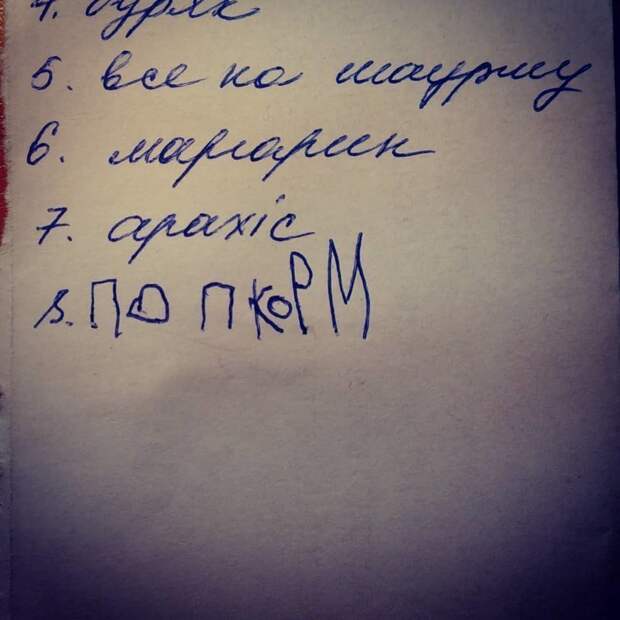 4. буряк
5. все на шаурму
6. маргарин
7. арахіс
8. ПО ПКОРМ